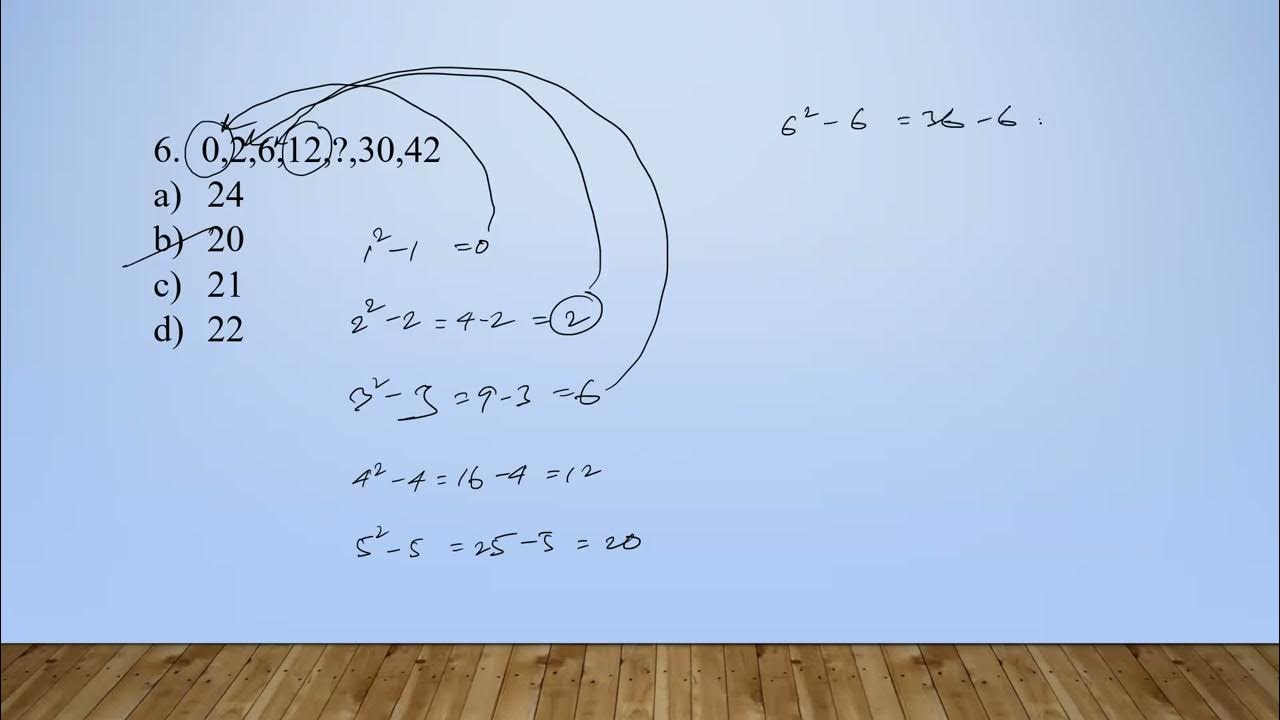 6. 0,2,6,12,?,30,42
a) 24
b) 20
c) 21
d) 22
1² - 1 = 0
2² - 2 = 4 - 2 = 2
3² - 3 = 9 - 3 = 6
4² - 4 = 16 - 4 = 12
5² - 5 = 25 - 5 = 20
6² - 6 = 36 - 6 :